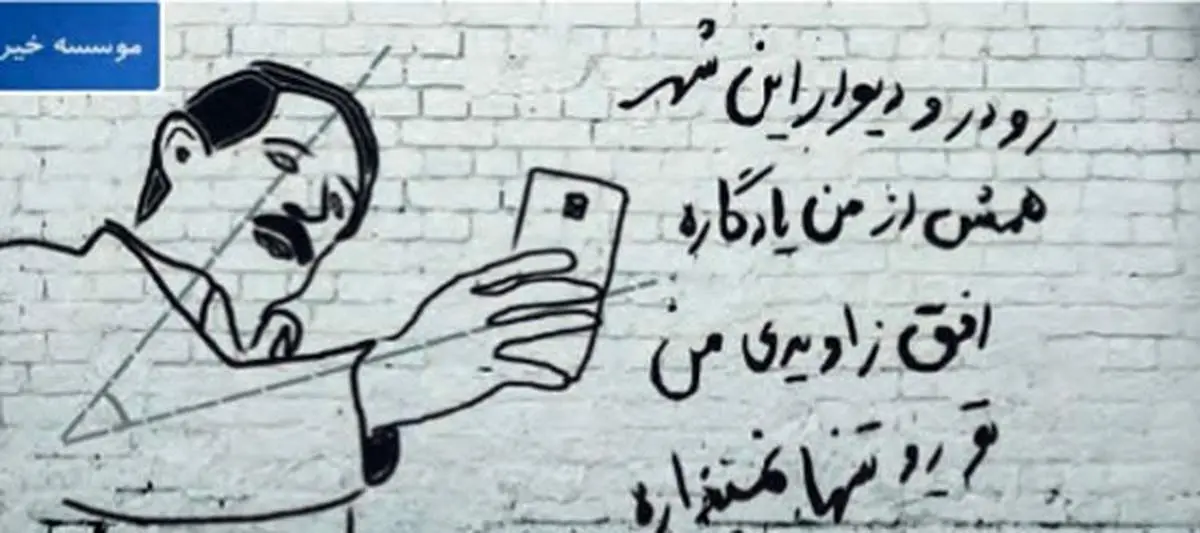 موسسه خیر
رو در و دیوار این شهر
همش از من یادگاره
افق زاویه‌ی من
تو رو تنها نمیذاره